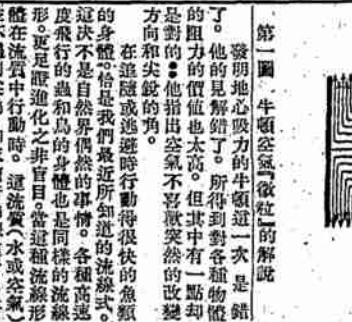 第一圖 牛頓空氣「微粒」的解說
發明地心吸力的牛頓這一次 是錯
了。他的見解錯了。所得到對各種物體
的阻力的價值也太高。但其中有一點却
是對的：他指出空氣不喜歡突然的改變
方向和尖銳的角。
在追隨或逃避時行動得很快的魚類
的身體。恰是我們最近所知道的流線式。
這決不是自然界偶然的事情。各種高速
度飛行的蟲和鳥的身體也是同樣的流線
形。更足證進化之非盲目。當這種流線形
體在流質中行動時。這流質（水或空氣）